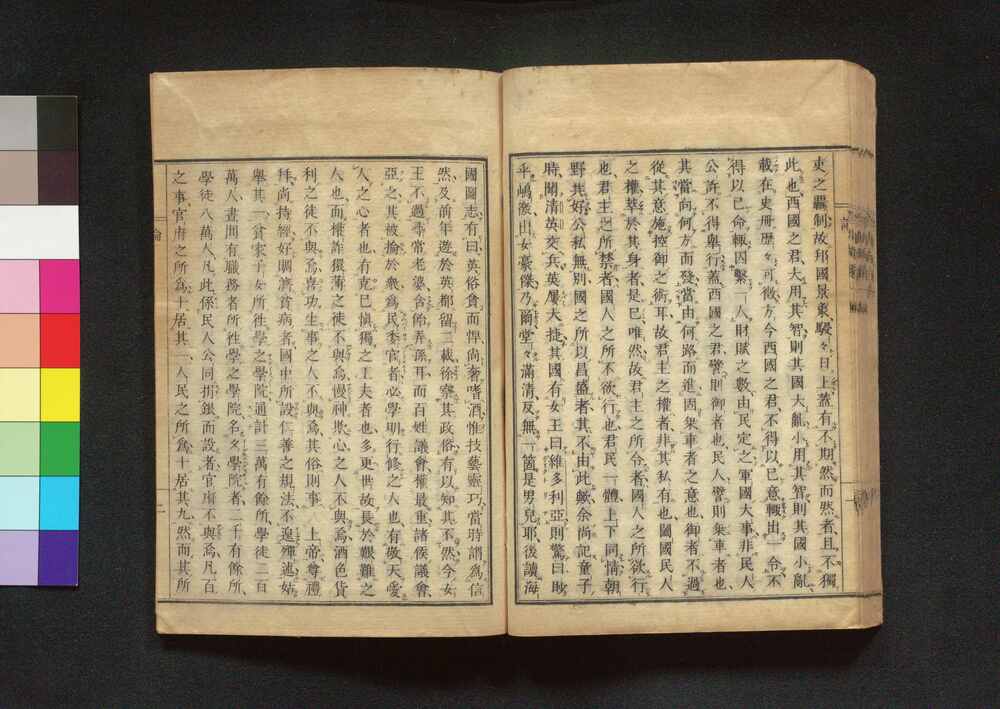 吏之羈制故邦國景象駸々日上蓋有不期然而然者且不獨
此也西國之君大用其智則其國大亂小用其智則其國小亂
載在史冊歷々可徵方今西國之君不得以己意輙出一令不
得以己命輙囚繫一人財賦之數由民定之軍國大事非民人
公許不得舉行蓋西國之君譬則御者也民人譬則乘車者也
其當向何方而發當由何路而進固乘車者之意也御者不過
從其意施控御之術耳故君主之權者非其私有也闔國民人
之權萃於其身者是已唯然故君主之所令者國人之所欲行
也君主之所禁者國人之所不欲行也君民一體上下同情朝
野共好公私無別國之所以昌盛者其不由此歟余尚記童子
時聞清英交兵英屢大捷其國有女王曰維多利亞則驚曰眇
乎嶋徼出女豪傑乃爾堂々滿清反無一箇是男兒耶後讀海
國圖志有曰英俗貪而悍尚奢嗜酒惟技藝靈巧當時謂為信
然及前年遊於英都留二載徐察其政俗有以知其不然今女
王不過尋常老婆含飴弄孫耳而百姓議會權最重諸侯議會
亞之其被掄於衆為民委官者必學明行修之人也有敬天愛
人之心者也有克己愼獨之工夫者也多更世故長於艱難之
人也而權詐獧薄之徒不與焉慢神欺心之人不與焉酒色貨
利之徒不與焉喜功生事之人不與焉其俗則事 上帝尊禮
拜尚持經好賙濟貧病者國中所設仁善之規法不遑殫述姑
舉其一貧家子女所往學之學院通計三萬有餘所學徒二百
萬人晝間有職務者所往學之學院名夕學院者二千有餘所
學徒八萬人凡此係民人公同捐銀而設者官府不與焉凡百
之事官府之所為十居其一人民之所為十居其九然而其所